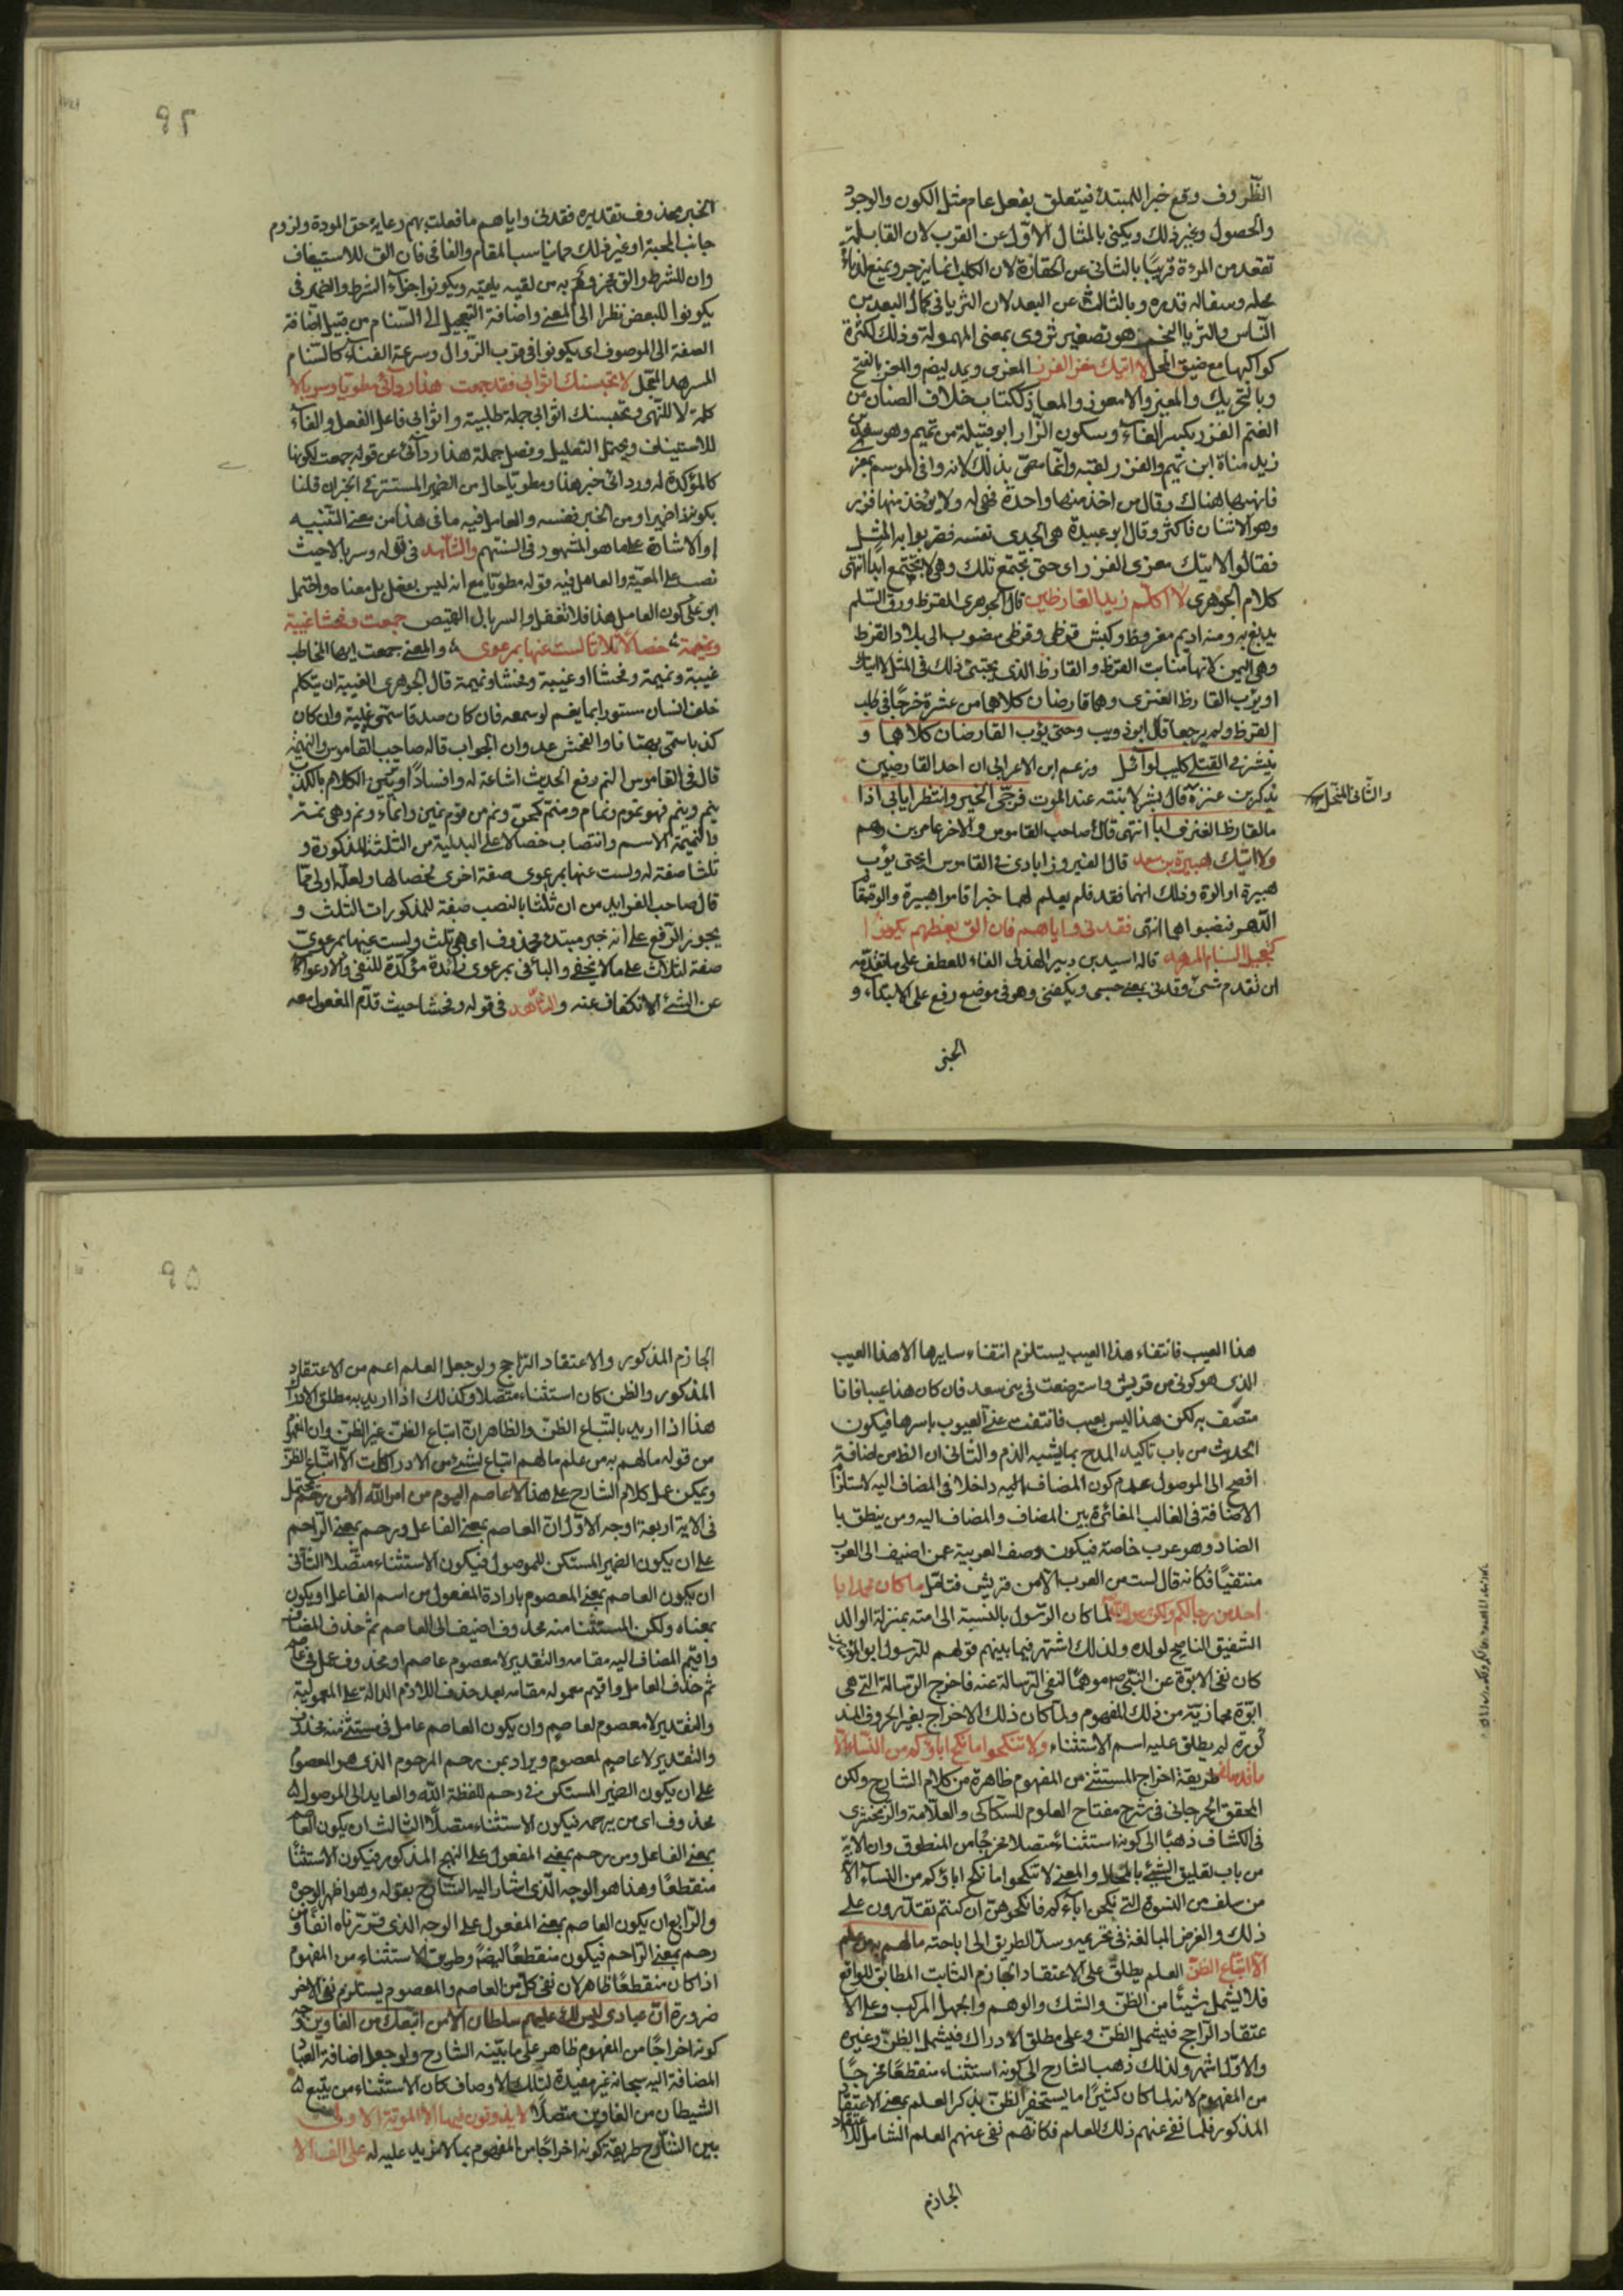 الظروف وقع خبرا للمبتدا فيتعلق بفعل عام مثل الكون والوجود
والحصول وغير ذلك ويكنى بالمثال الاول عن القرب لان القابلة
تقعد من المرءة قريبا بالثانى عن الحقارة لان الكلب انما يزجر ويمنع لدناءة
محله وسفاله قدره وبالثالث عن البعد لان الثريا فى كمال البعد من
الناس والثريا النجم هو تصغير ثروى بمعنى المهمولة وذلك لكثرة
كواكبها مع ضيق المحل لا اتيك معز الفزر المعزى ويمد ليضم والمعز بالفتح
وبالتحريك والمعيز والامعوز والمعاز ككتاب خلاف الضان من
الغنم الفزر بكسر الفاء وسكون الزار ابو قبيلة من تميم وهو سعد بن
زيد مناة ابن تميم والفزر لقبه وانما سمى بذلك لانه وافى الموسم بمعز
فانهبها هناك وقال من اخذ منها واحدة فهى له ولا يؤخذ منها فزر
وهو الاثنان فاكثر وقال ابو عبيدة هى الجدى نفسه فضربوا به المثل
فقالوا لا اتيك معزى الفزر اى حتى تجتمع تلك وهى لا تجتمع ابدا انتهى
كلام الجوهرى لا اكلم زيدا القارظين قال الجوهرى القرظ ورق السلم
يدبغ به ومنه اديم مقروظ وكبش قرظى وقرظى منسوب الى بلاد القرظ
وهى اليمن لانها منابت القرظ والقارظ الذى يجتبى ذلك فى المثل لا اتيك
او يؤب القارظ العنزى وهما قارضان كلاهما من عنزة خرجا فى طلب
القرظ ولم يرجعا قال ابو ذويب وحتى يؤب القارضان كلاهما و
ينشر فى القتلى كليب لوائل وزعم ابن الاعرابى ان احد القارضين
يذكر بن عنزة قال بشر لابنته عند الموت فرجى الخير وانتظر ايابى اذا
والثانى المنخل
ما القارظ العنزى ابا انتهى قال صاحب القاموس والاخر عامر بن رهم
ولا اتيك هبيرة بن سعد قال الفيروزابادى فى القاموس اى حتى يؤب
هبيرة او الوة وذلك انهما فقد فلم يعلم لهما خبر اقاموا هبيرة والوة مقام
الدهر فنصبوا هما انتهى فقدنى واياهم فان الق بعضهم يكونوا
كتعجيل السنام المسرهد قاله اسيد بن دبير الهذلى الفاء للعطف على ما تقدمه
ان تقدم شئ وقدنى بمعنى حسبى ويكفنى وهو فى موضع رفع على الابتداء و
الخبر
٩٢
الخبر محذوف تقديره فقدنى واياهم ما فعلت بهم رعاية حق المودة ولزوم
جانب المحبة او غير ذلك مما يناسب المقام والفا فى فان الق للاستيناف
وان للشرط والق مجزوم به من لقيه يلقيه ويكونوا جزاء الشرط والضمير فى
يكونوا للبعض نظرا الى المعنى واضافة التعجيل الى السنام من قبيل اضافة
الصفة الى الموصوف اى يكونوا فى قرب الزوال وسرعة الفناء كالسنام
المسرهد المعجل لا تحبسنك اثوابى فقد جمعت هذا ردائى مطويا وسربالا
كلمة لا للنهى وتحبسنك اثوابى جملة طلبية واثوابى فاعل الفعل والفاء
للاستيناف ويحتمل التعليل وفصل جملة هذا ردائى عن قوله جمعت لكونها
كالمؤكدة له وردائى خبر هذا ومطويا حال من الضمير المستتر فى الخبر ان قلنا
بكونه ذا ضمير او من الخبر نفسه والعامل فيه ما فى هذا من معنى التنبيه
او الاشارة على ما هو المشهور فى السنتهم والشاهد فى قوله وسربالا حيث
نصب على المعية والعامل فيه قوله مطويا مع انه ليس بفعل بل بمعناه واحتمل
ابو على كون العامل هذا فلا تغفل والسربال القميص جمعت وفحشا غيبة
ونميمة خصالا ثلاثا لست عنها بمرعوى والمعنى جمعت ايها المخاطب
غيبة ونميمة وفحشا او غيبة وفحشا ونميمة قال الجوهرى الغيبة ان يتكلم
خلف انسان مستور بما يغمه لو سمعه فان كان صدقا سمى غيبة وان كان
كذبا سمى بهتانا والفحش عدوان الجواب قاله صاحب القاموس والنميمة
قال فى القاموس النم رفع الحديث اشاعة له وافسادا وتزيين الكلام بالكذب
ينم وينم فهو نموم ونمام ومنم كمجن ونم من قوم نمين وانماء ونم وهى نمة
والنميمة الاسم وانتصاب خصالا على البدلية من الثلثة المذكورة و
ثلثا صفة له ولست عنها بمرعوى صفة اخرى لخصالها ولعله اولى مما
قال صاحب الفوايد من ان ثلثا بالنصب صفة للمذكورات الثلث و
يجوز الرفع على انه خبر مبتدا محذوف اى هى ثلث ولست عنها بمرعوى
صفة لثلاث على ما لا يخفى والبا فى بمرعوى زائدة مؤكدة للنفى والارعواء
عن الشئ الانكفاف عنه والشاهد فى قوله وفحشا حيث قدم المفعول معه
هذا العيب فانتفاء هذا العيب يستلزم انتفاء سايرها الا هذا العيب
الذى هو كونى من قريش واسترضعت فى بنى سعد فان كان هذا عيبا فانا
متصف به لكن هذا ليس بعيب فانتفت عنى العيوب باسرها فيكون
الحديث من باب تاكيد المدح بما يشبه الذم والثانى ان الظ من اضافة
افصح الى الموصول عدم كون المضاف اليه داخلا فى المضاف اليه لاستلزام
الاضافة فى الغالب المغائرة بين المضاف والمضاف اليه ومن ينطق با
الضاد وهو عرب خاصة فيكون وصف العربية عمن اضيف الى العرب
منتفيا فكانه قال لست من العرب الا من قريش فتامل ما كان محمد ابا
احد من رجالكم ولكن رسول الله لما كان الرسول بالنسبة الى امته بمنزلة الوالد
الشفيق الناصح لولده ولذلك اشتهر فيما بينهم قولهم للرسول ابو المؤمنين
كان نفى الابوة عن النبى ص موهما لنفى الرسالة عنه فاخرج الرسالة التى هى
ابوة مجازية من ذلك المفهوم ولما كان ذلك الاخراج بغير الحروف المذ
كورة لم يطلق عليه اسم الاستثناء ولا تنكحوا ما نكح اباؤكم من النساء الا
ما قد سلف طريقة اخراج المستثنى من المفهوم ظاهرة من كلام الشارح ولكن
المحقق الجرجانى فى شرح مفتاح العلوم للسكاكى والعلامة والزمخشرى
فى الكشاف ذهبا الى كونه استثناء متصلا مخرجا من المنطوق وان الاية
من باب تعليق الشئ بالمحال والمعنى لا تنكحوا ما نكح اباؤكم من النساء الا
من سلف من النسوة التى نكحن اباءكم فانكحوهن ان كنتم تقدرون على
ذلك والغرض المبالغة فى تحريمه وسد الطريق الى اباحته ما لهم به من علم
الا اتباع الظن العلم يطلق على الاعتقاد الجازم الثابت المطابق للواقع
فلا يشمل شيئا من الظن والشك والوهم والجهل المركب وعلى الا
عتقاد الراجح فيشمل الظن وعلى مطلق الادراك فيشمل الظن وغيره
والاول اشهر ولذلك ذهب الشارح الى كونه استثناء منقطعا مخرجا
من المفهوم لانه لما كان كثيرا ما يستحضر الظن بذكر العلم بمعنى الاعتقاد
المذكور فلما نفى عنهم ذلك العلم فكانهم نفى عنهم العلم الشامل للاعتقاد
الجازم
٩٥
الجازم المذكور والاعتقاد الراجح ولو جعل العلم اعم من الاعتقاد
المذكور والظن كان استثناء متصلا وكذلك اذا اريد به مطلق الادراك
هذا اذا اريد باتباع الظن الظن والظاهر ان اتباع الظن غير الظن وان المفهوم
من قوله ما لهم به من علم ما لهم اتباع بشئ من الادراكات الا اتباع الظن
ويمكن حمل كلام الشارح على هذا لا عاصم اليوم من امر الله الا من رحم يحتمل
فى الاية اربعة اوجه الاول ان العاصم بمعنى الفاعل ورحم بمعنى الراحم
على ان يكون الضمير المستكن للموصول فيكون الاستثناء متصلا الثانى
ان يكون العاصم بمعنى المعصوم بارادة المفعول من اسم الفاعل او يكون
بمعناه ولكن المستثنا منه محذوف اضيف الى العاصم ثم حذف المضاف
واقيم المضاف اليه مقامه والتقدير لا معصوم عاصم او محذوف عمل فى عاصم
ثم حذف العامل واقيم معموله مقامه بعد حذف اللازم الدالة على المعمولية
والتقدير لا معصوم لعاصم وان يكون العاصم عامل فى مستثنى منه محذوف
والتقدير لا عاصم لمعصوم ويراد بمن رحم المرحوم الذى هو المعصوم
على ان يكون الضمير المستكن فى رحم للفظة الله والعايد الى الموصول
محذوف اى من يرحمه فيكون الاستثناء متصلا الثالث ان يكون العاصم
بمعنى الفاعل ومن رحم بمعنى المفعول على النهج المذكور فيكون الاستثناء
منقطعا وهذا هو الوجه الذى اشار اليه الشارح بقوله وهو اظهر الوجوه
والرابع ان يكون العاصم بمعنى المفعول على الوجه الذى قررناه انفا ومن
رحم بمعنى الراحم فيكون منقطعا ايضا وطريق الاستثناء من المفهوم
اذا كان منقطعا ظاهر لان نفى كل من العاصم والمعصوم يستلزم نفى الاخر
ضرورة ان عبادى ليس لك عليهم سلطان الا من اتبعك من الغاوين وجه
كونه اخراجا من المفهوم ظاهر على ما بينه الشارح ولو جعل اضافة العباد
المضافة اليه سبحانه غير مفيدة لتلك الاوصاف كان الاستثناء من يتبع
الشيطان من الغاوين متصلا لا يذوقون فيها الا الموتة الاولى
بين الشارح طريقة كونه اخراجا من المفهوم بما لا مزيد عليه له على الف الا